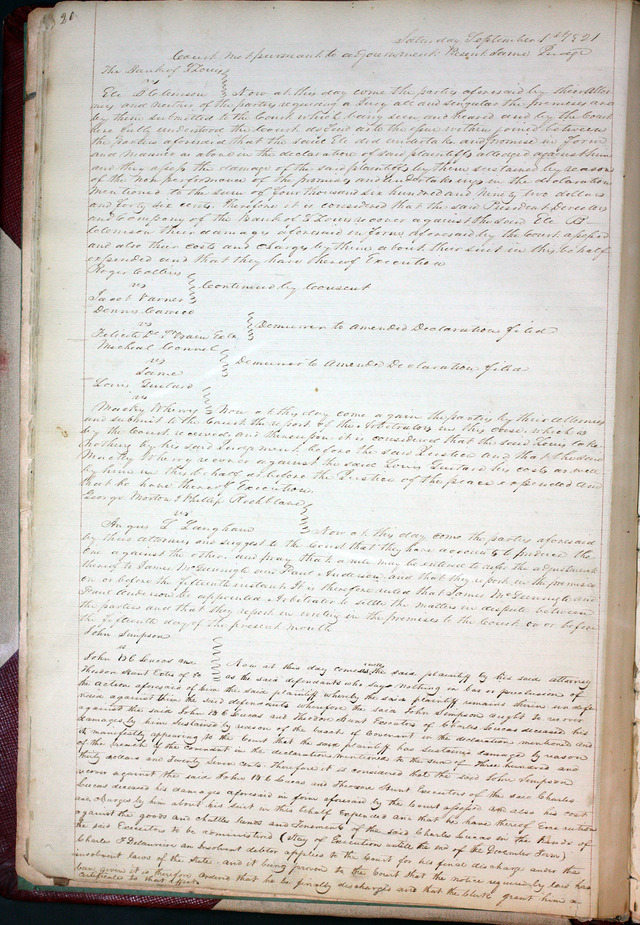 20
Saturday September 1st 1821
Court met pursuant to adjournment Present same Judge
The Bank of St Louis
vs
Eli B Clemson Now at this day come the parties aforesaid by their Attor
nies and neither of the parties requiring a Jury all and singular the premises are
by them submitted to the Court which being seen and heard and by the Court
here fully understood the Court doth find as to the issue within joined between
the parties aforesaid that the said Eli did undertake and promise in form
and manner as above in the declaration of said plaintiffs alleged against him
and they assess the damage of the said plaintiffs by them sustained by reason
of the non performance of the promises and undertakings in the declaration
mentioned to the sum of four thousand six hundred and ninety two dollars
and forty six cents. Therefore it is considered that the said President Directors
and Company of the Bank of St Louis recover against the said Eli B
Clemson their damages aforesaid in form aforesaid by the Court assessed
and also their costs and charges by them about their suit in this behalf
expended and that they have thereof Execution
Roger Collins
vs Continued by Consent
Jacob Varner
Dennis
vs Demurrer to Amended Declaration filed
Felicite
Micheal Connel
vs Demurrer to Amended Declaration filed
Same
Louis Guitard
vs
Macky Wherry Now at this day come again the parties by their attornies
and submit to the Court the report of the Arbitrators in this case which is
by the Court received, and thereupon it is considered that the said Louis take
nothing by his said Judgement before the said Justice and that the said
Macky Wherry recover against the said Louis Guitard his costs as well
by him in this behalf as before the Justice of the peace expended and
that he have thereof Execution
George Morton & Phillip Rochblave
vs
Angus L Langham Now at this day come the parties aforesaid
by their attornies and suggest to the Court that they have accounts to produce the
one against the other, and pray that a rule may be entered to refer the adjustment
thereof to James McGunnegle and Paul Anderson, and that they report in the premises
on or before the fifteenth instant. It is therefore ruled that James McGunnegle and
Paul Anderson be appointed Arbitrators to settle the matters in dispute between
the parties and that they report in writing in the premises to the Court on or before
the fifteenth day of the present month
John Simpson
vs
John B C Lucas and Now at this day comes as well the said plaintiff by his said attorney
Theodore Hunt as the said defendants who say nothing in bar or preclusion of
the action aforesaid of him the said plaintiff whereby the said plaintiff remains therein undefen
ded against them the said defendants wherefore the said John Simpson ought to recover
against the said John B C Lucas and Theodore Hunt Executors of Charles Lucas deceased his
damages by him sustained by reason of the breach of Covenant in the declaration mentioned and
it manifestly appearing to the Court that the said plaintiff has sustained damage by reason
of the breach of the Covenant in the declaration mentioned to the sum of three hundred and
thirty dollars and Twenty Seven cents. Therefore it is considered that the said John Simpson
recover against the said John B C Lucas and Theodore Hunt Executors of the said Charles
Lucas deceased his damages aforesaid in form aforesaid by the Court assessed and also his cost
and charges by him about his suit in this behalf Expended and that he have thereof Execution
against the goods and chattles lands and Tenements of the said Charles Lucas in the hands of
the said Executors to be administered (Stay of Execution untill the end of the December Term)
Charles F Delauriere an Insolvent debtor applies to the Court for his final discharge under the
insolvent laws of the State. and it being proven to the Court that the notice required by law has
been given it is therefore ordered that he be finally discharged and that the Clerk grant him a
certificate to that effect